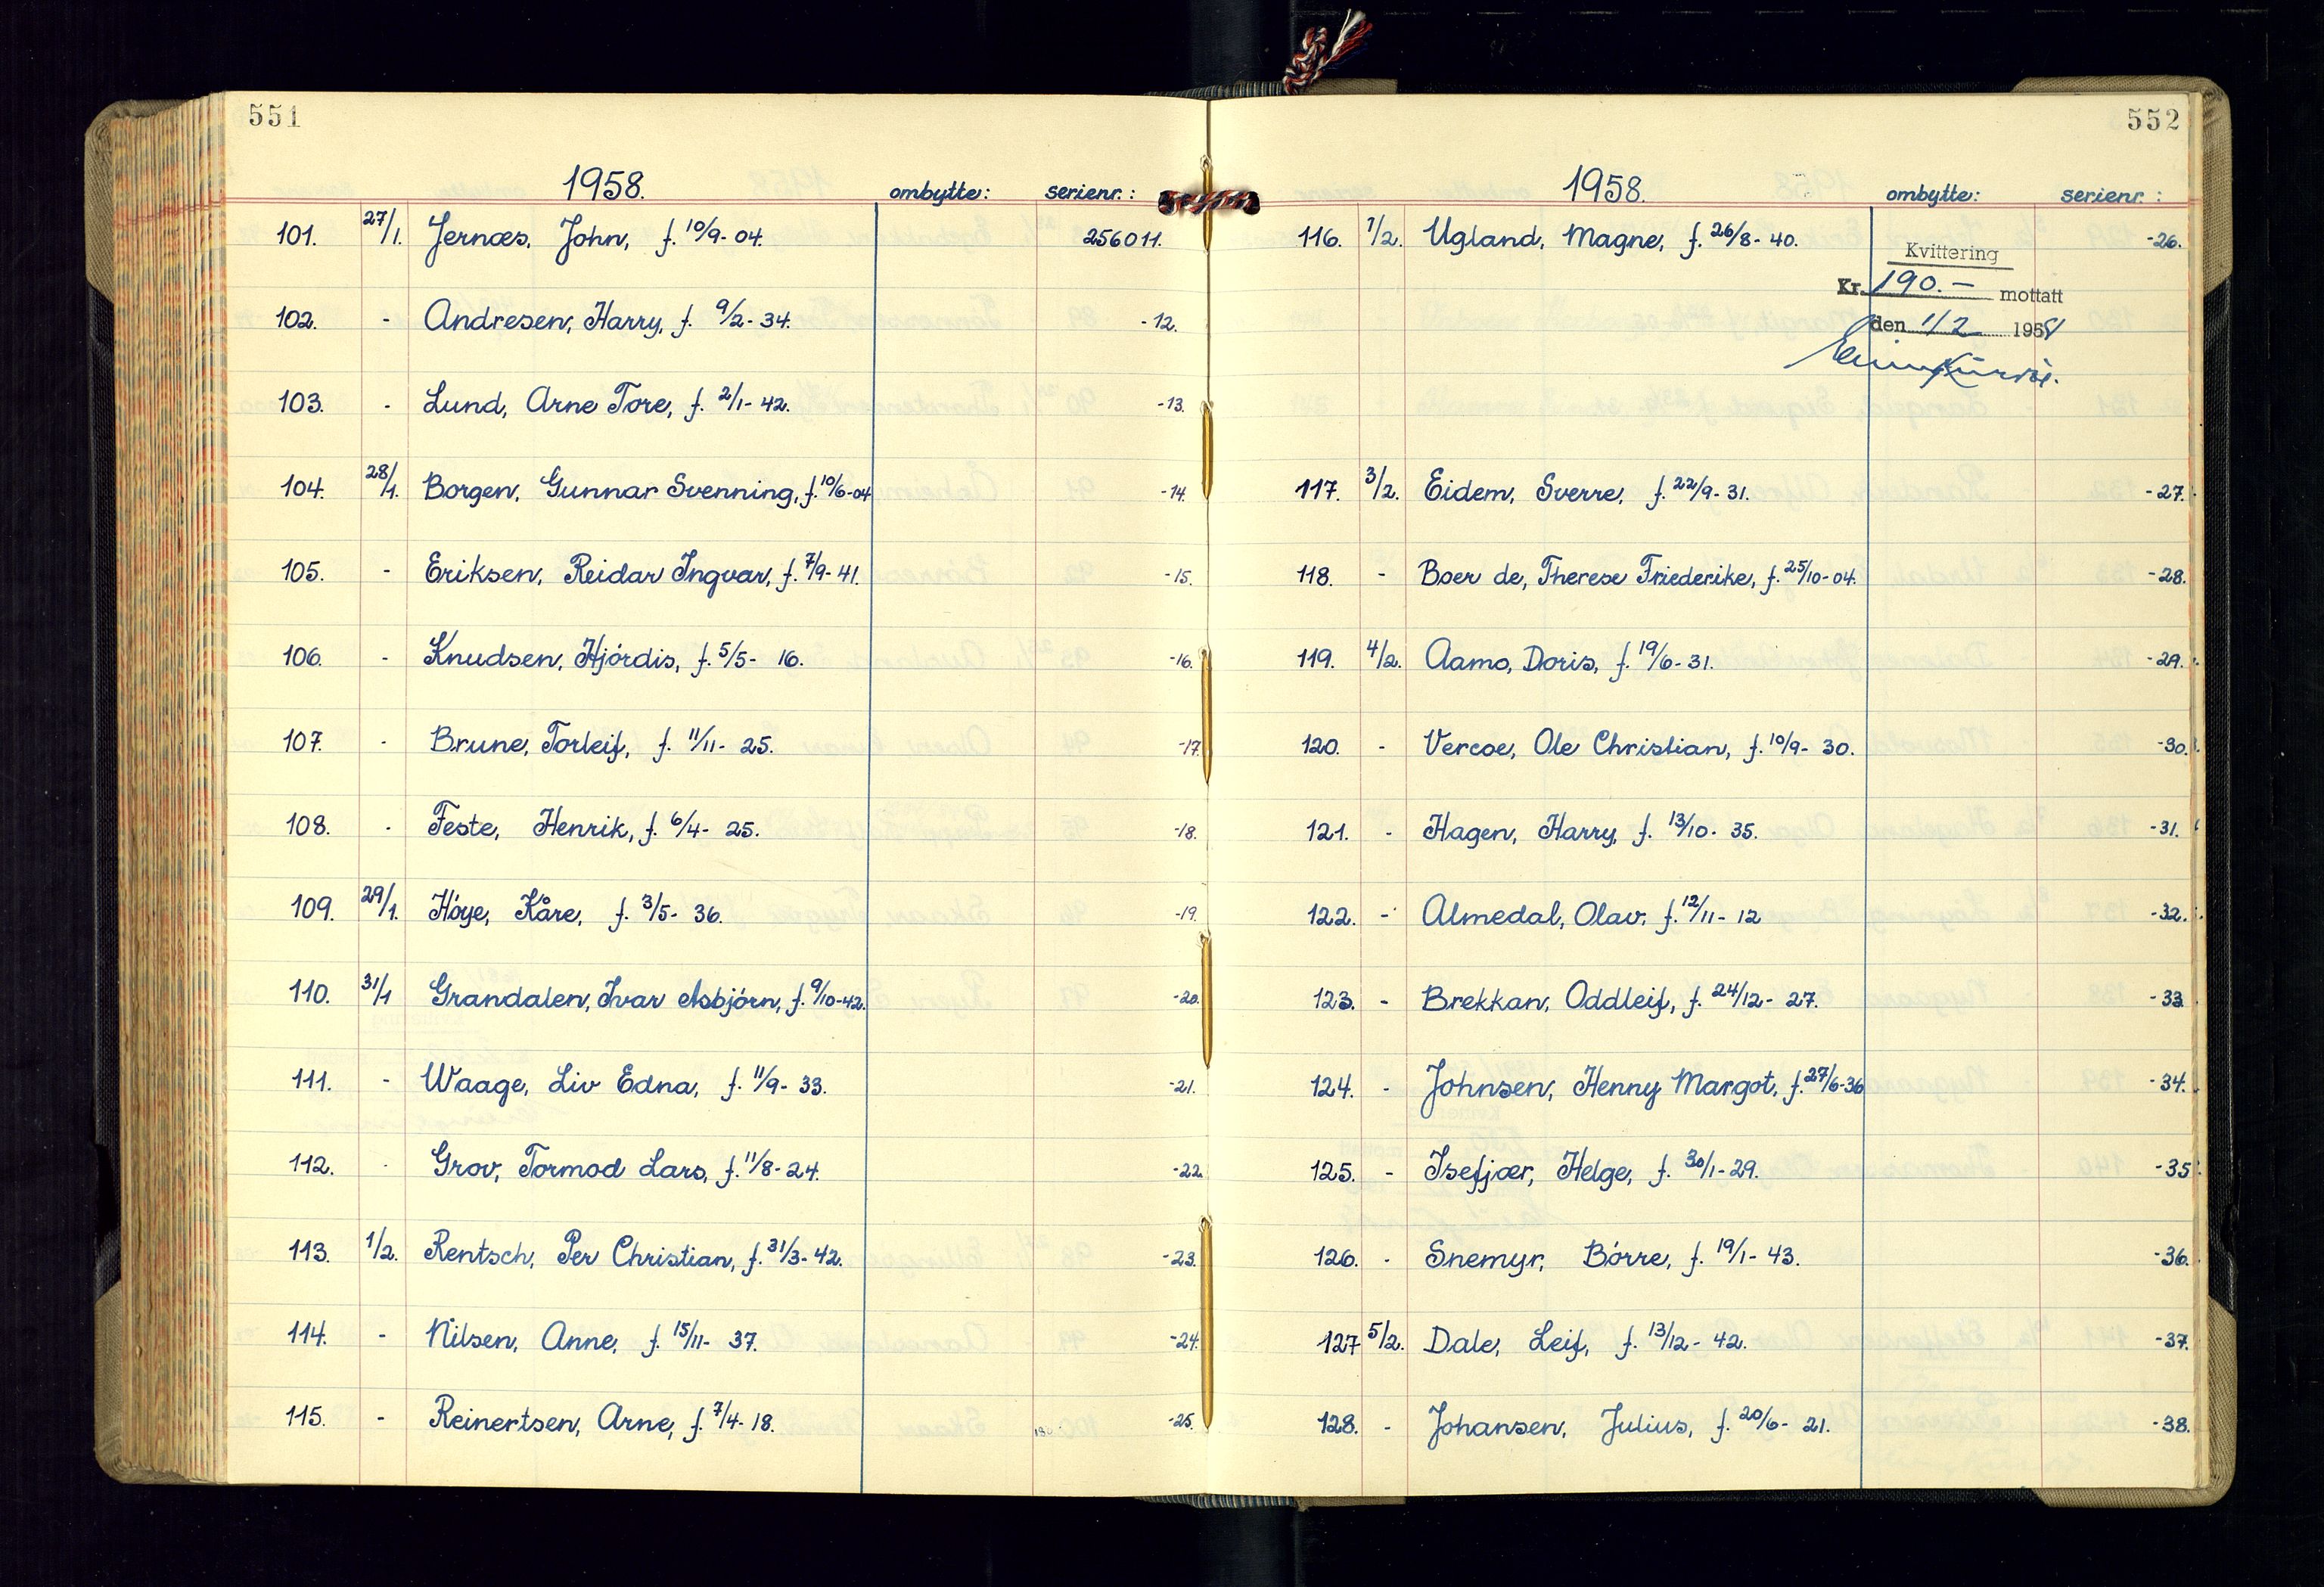 551
1958. ombytte: serienr.:
101. 27/1. Jernæs, John, f. 10/9-04. 256011.
102. - Andresen, Harry, f. 9/2-34. -12.
103. - Lund, Arne Tore, f. 2/1-42. -13.
104. 28/1. Borgen, Gunnar Svenning, f. 10/6-04 -14.
105. - Eriksen, Reidar Ingvar, f. 7/9-41. -15.
106. - Knudsen, Hjördis, f. 5/5- 16. -16.
107. - Brune, Torleif, f. 11/11- 25. -17.
108. - Feste, Henrik, f. 6/4- 25. -18.
109. 29/1. Höye, Kåre, f. 3/5- 36. -19.
110. 31/1 Grandalen, Ivar Asbjörn, f. 9/10-42. -20.
111. - Waage, Liv Edna, f. 11/9- 33. -21.
112. - Grov, Tormod Lars, f. 11/8-24. -22.
113. 1/2. Rentsch, Per Christian, f. 31/3-42. -23.
114. - Nilsen, Anne, f. 15/11- 37. -24.
115. - Reinertsen, Arne, f. 7/4-18. -25.
552
1958. ombytte: serienr.:
116. 1/2. Ugland, Magne, f. 26/8-40. -26.
Kvittering
Kr. 190.- mottatt
den 1/2 1958
117. 3/2. Eidem, Sverre, f. 22/9-31. -27.
118. - Boer de, Therese Friederike, f. 25/10-04. -28.
119. 4/2. Aamo, Doris, f. 19/6-31. -29.
120. - Vercoe, Ole Christian, f. 10/9- 30. -30.
121. - Hagen, Harry, f. 13/10- 35. -31.
122. - Almedal, Olav, f. 12/11-12 -32.
123. - Brekkan, Oddleif, f. 24/12- 27. -33.
124. - Johnsen, Henny Margot, f. 27/6-36 -34.
125. - Isefjær, Helge, f. 30/1-29. -35.
126. - Snemyr, Börre, f. 19/1-43. -36.
127 5/2. Dale, Leif, f. 13/12-42. -37.
128. - Johansen, Julius, f. 20/6- 21. -38.